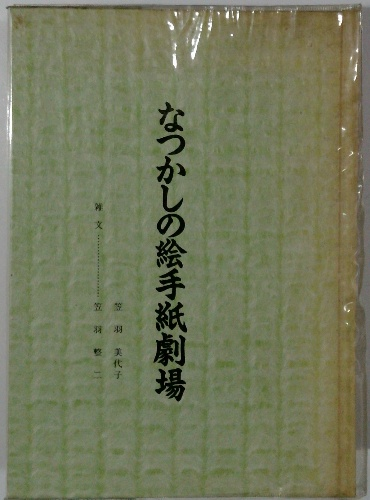 なつかしの絵手紙劇場
笠羽 美代子
雑文………………笠羽 繁二